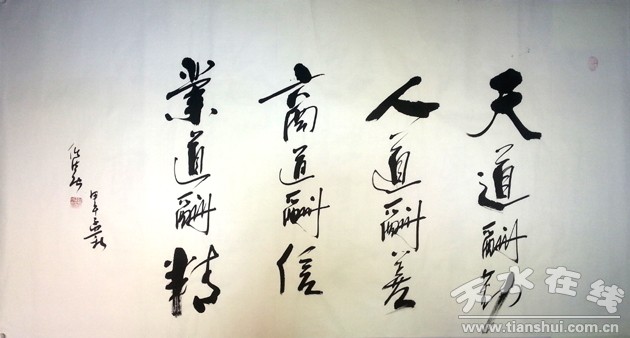 天道酬勤
人道酬善
商道酬信
業道酬精
天水在线
www.tianshui.com.cn